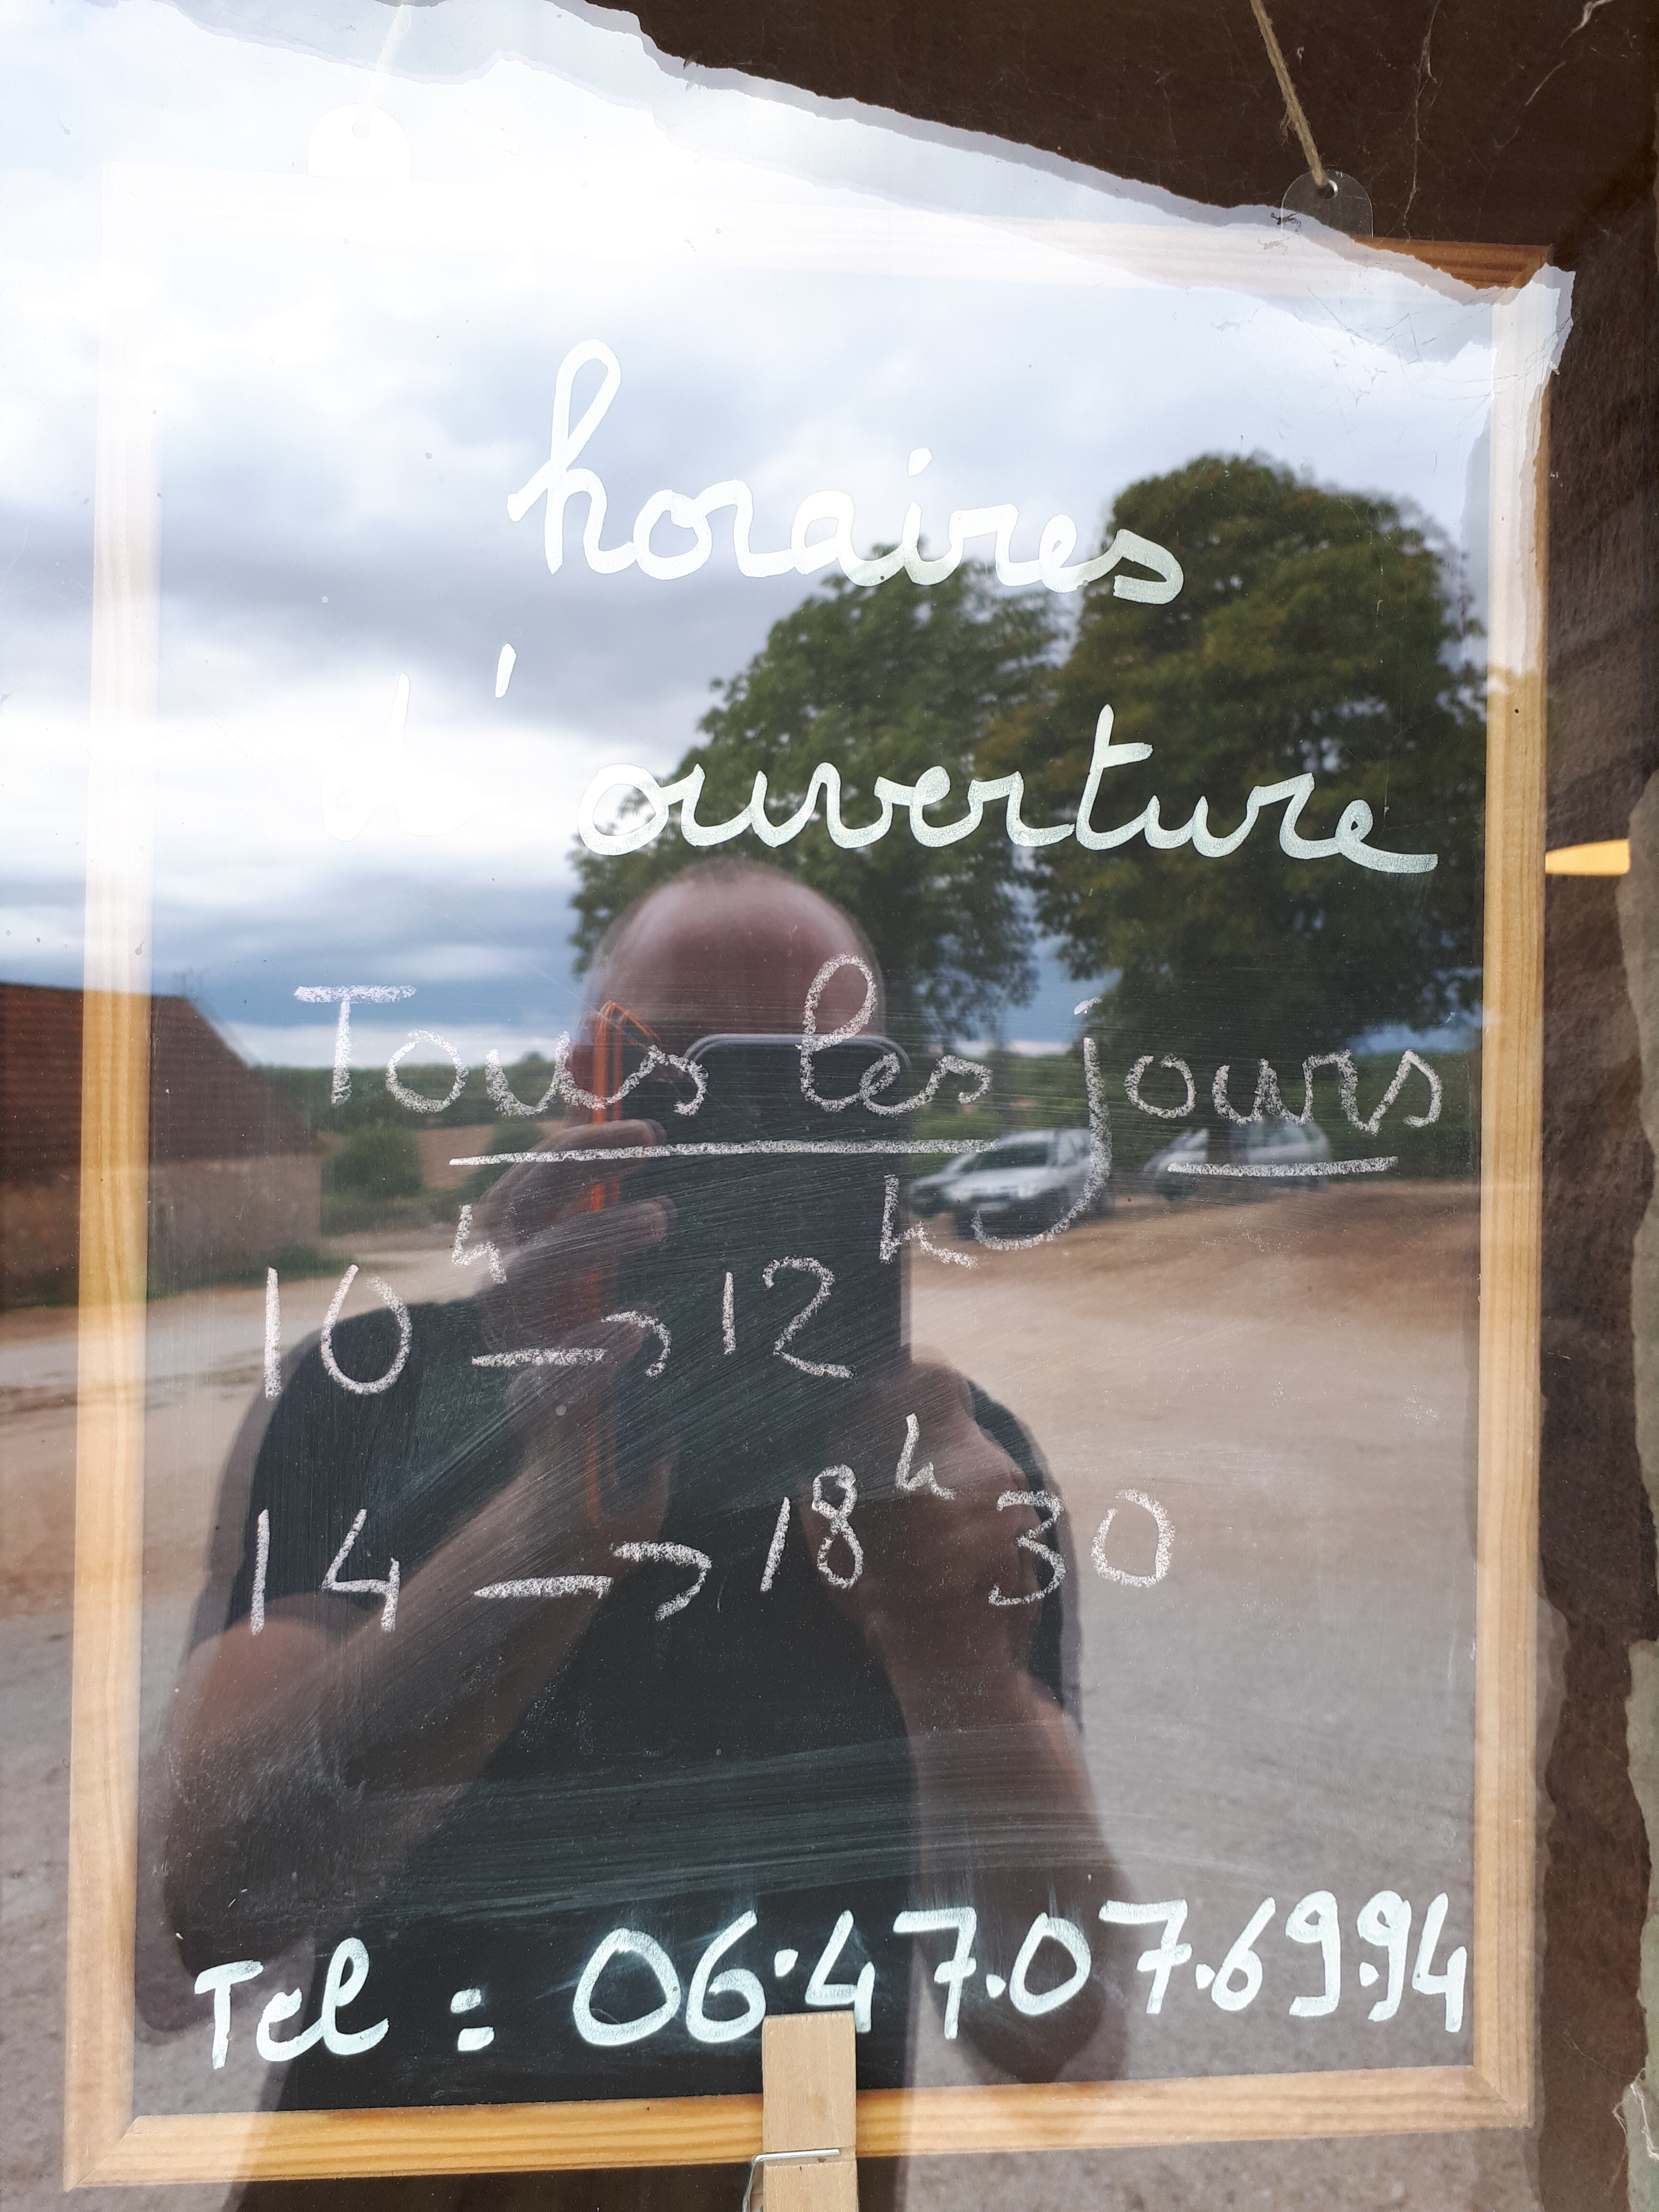 horaires
d'ouverture
Tous les jours
10h → 12h
14 → 18h30
Tel : 06.47.07.69.94